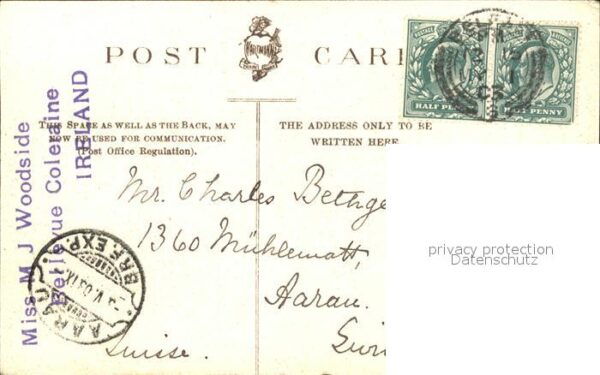 POST CAR
THIS SPACE AS WELL AS THE BACK, MAY
NOW BE USED FOR COMMUNICATION.
(Post Office Regulation).
THE ADDRESS ONLY TO BE
WRITTEN HERE
HALF PENNY
HALF PENNY
Miss M J Woodside
Bellevue Coleraine
IRELAND
Mr. Charles Bethge
1360 Mühlematt,
Aarau.
Suisse.
AARAU
BRF. EXP.
privacy protection
Datenschutz